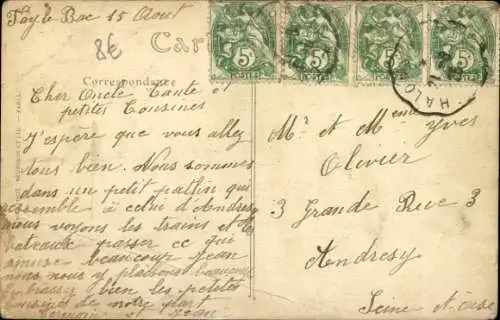 Fay le Bac 15 Aout
8€
Cart
Correspondance
Cher Oncle Tante et
petites Cousines
J'espère que vous allez
tous bien. Nous sommes
dans un petit patlin qui
ressemble à celui d'Andresy
nous voyons les trains et les
bateaux passer ce qui
amuse beaucoup Jean
nous nous y plaisons beaucoup
Embrassez bien les petites
cousines de notre part
Germaine et Jean
5 5 5 5
POSTES POSTES POSTES POSTES
Mr et Meme Yves
Olivier
3 Grande Rue 3
Andresy
Seine et Oise